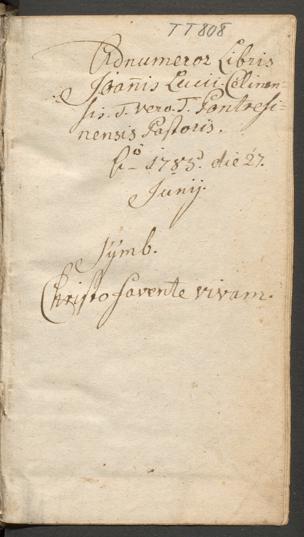 TT 808
Adnumeror Libris
Joañis Lucii Cellinen-
sis. T. vero. T. Pontresi-
nensis Pastoris.
Aō 1785. die 27.
Junij.
Symb.
Christo favente vivam.